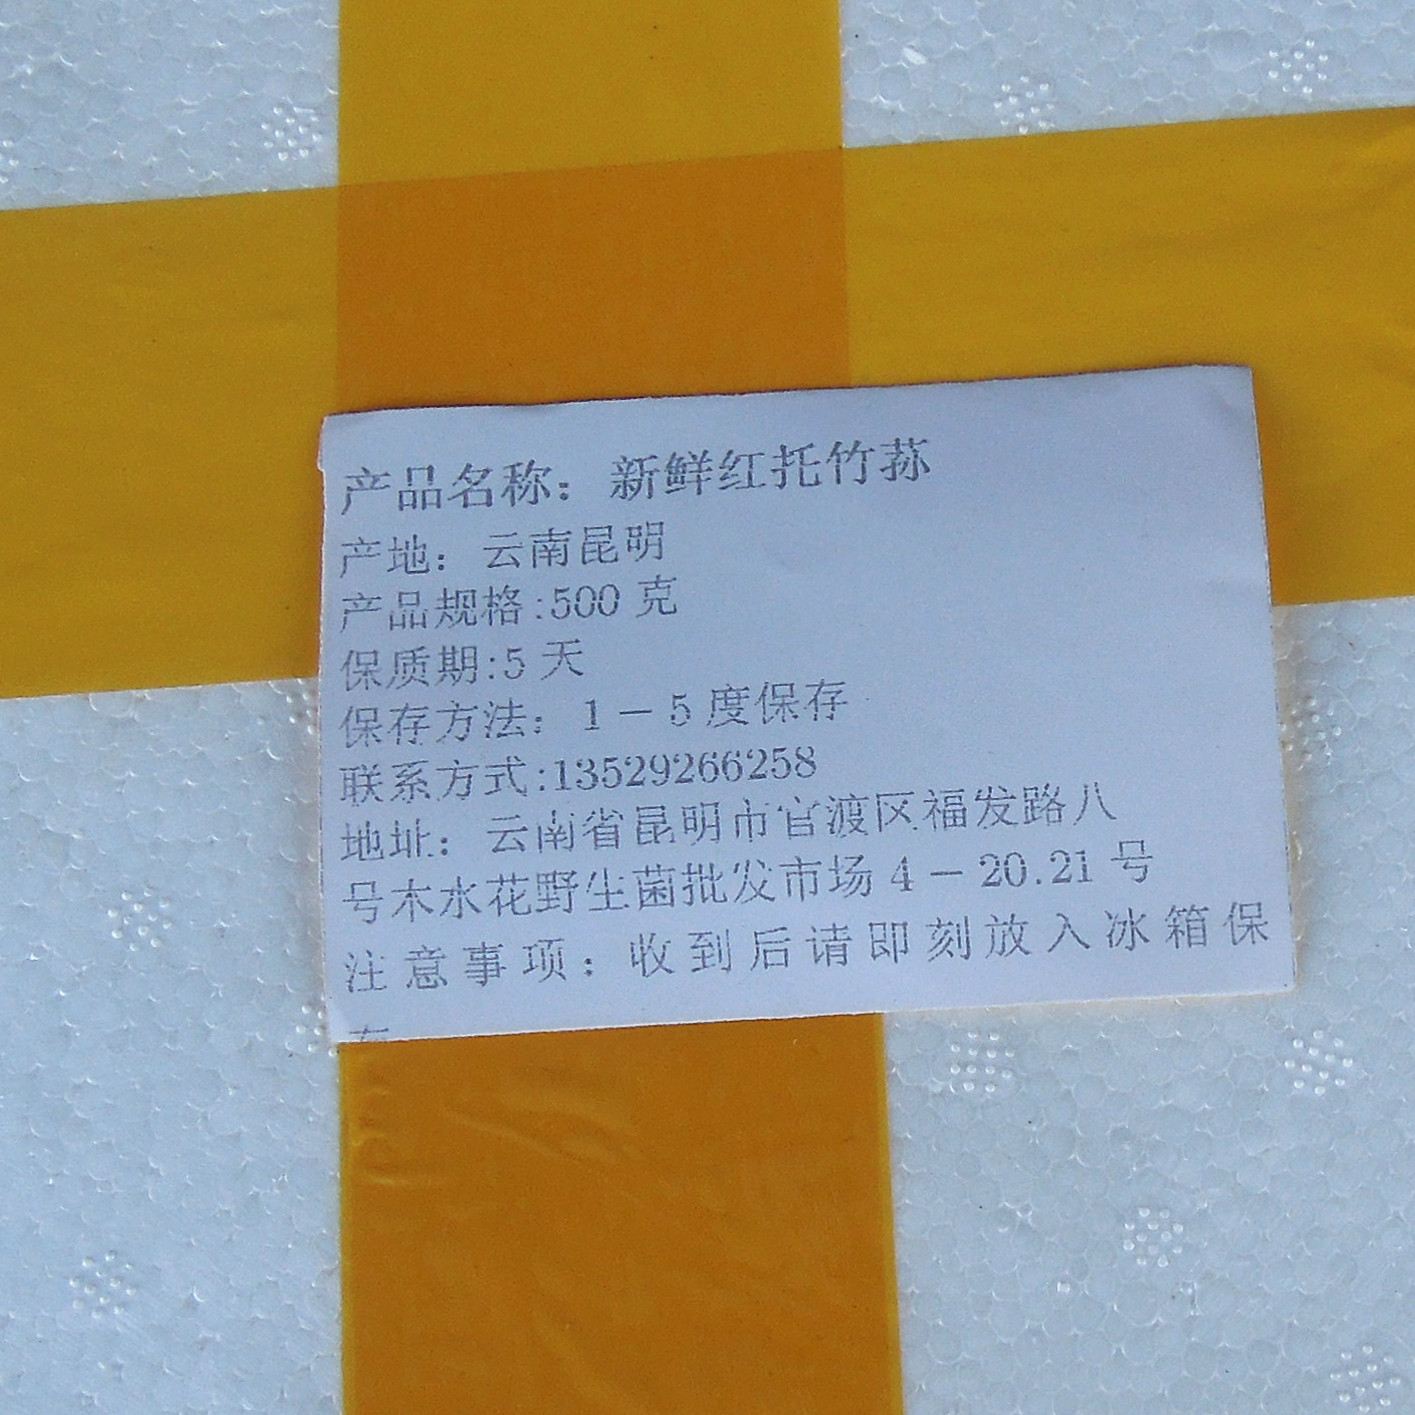 产品名称：新鲜红托竹荪
产地：云南昆明
产品规格:500 克
保质期:5 天
保存方法：1－5 度保存
联系方式:13529266258
地址：云南省昆明市官渡区福发路八
号木水花野生菌批发市场 4－20.21 号
注意事项：收到后请即刻放入冰箱保